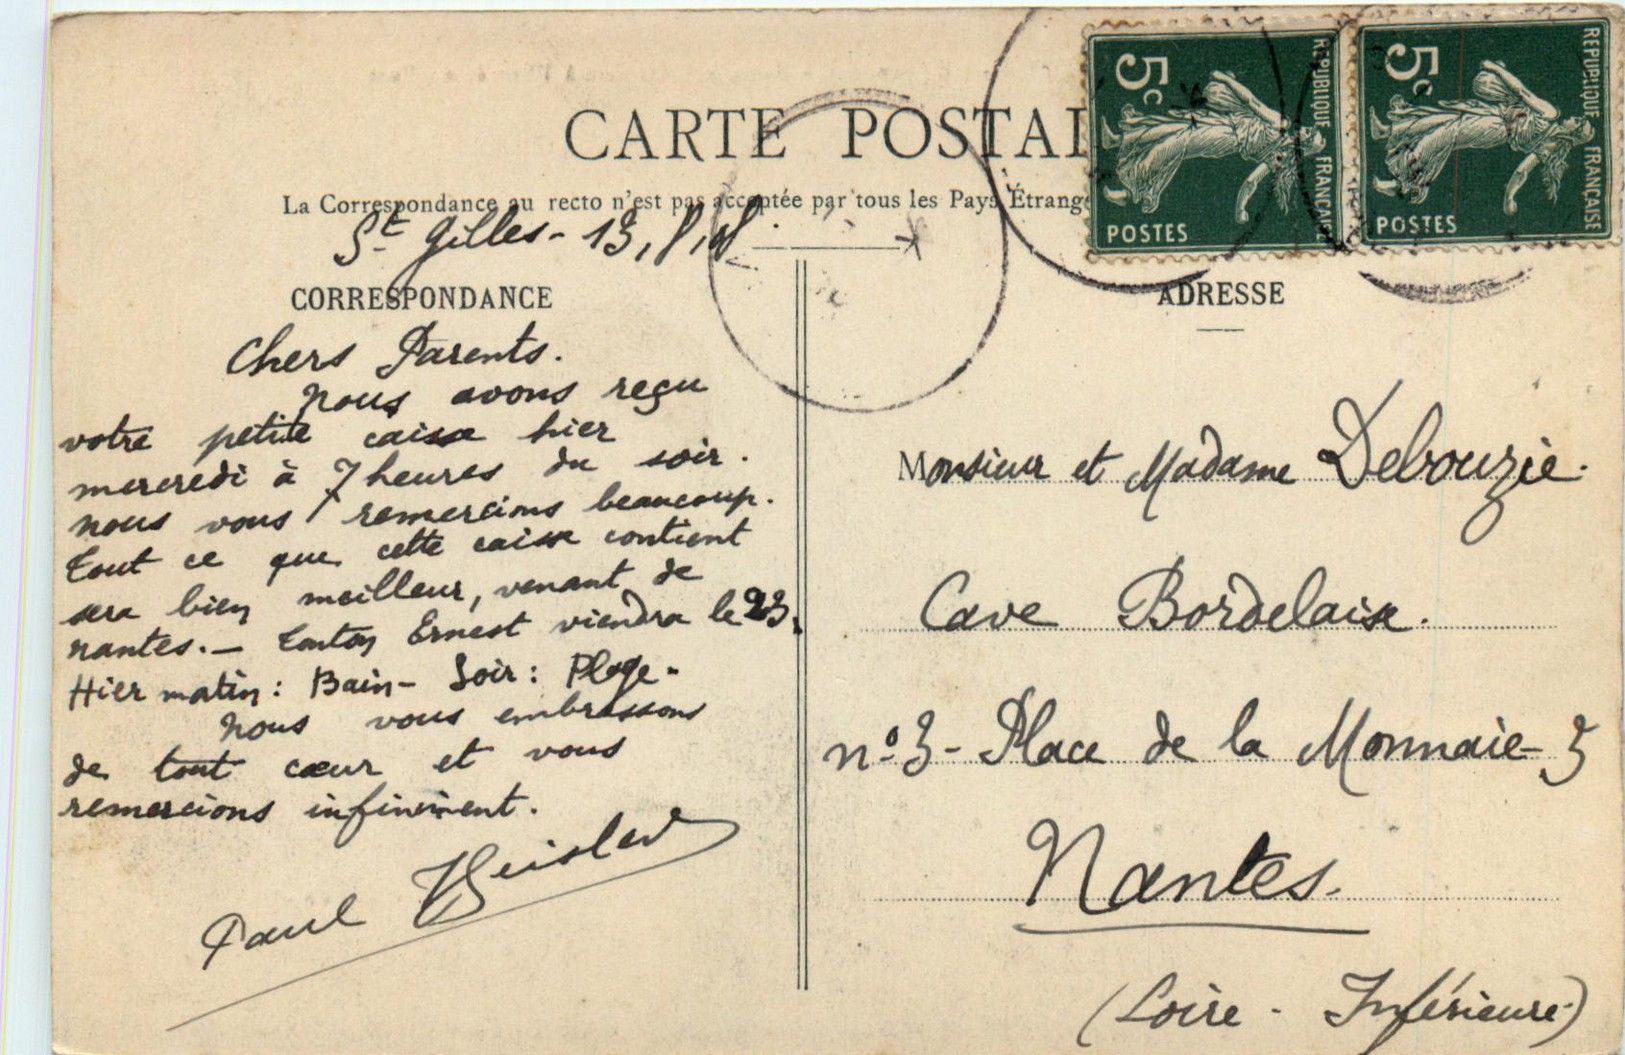 CARTE POSTAL
La Correspondance au recto n'est pas acceptée par tous les Pays Étrang
St Gilles - 13, 8, 08.
CORRESPONDANCE
Chers Parents.
Nous avons reçu
votre petite caisse hier
mercredi à 7 heures du soir.
nous vous remercions beaucoup.
tout ce que cette caisse contient
sera bien meilleur, venant de
nantes. — Tonton Ernest viendra le 23.
Hier matin : Bain - Soir : Plage -
Nous vous embrassons
de tout cœur et vous
remercions infiniment.
Paul
5c
REPUBLIQUE FRANÇAISE
POSTES
5c
REPUBLIQUE FRANÇAISE
POSTES
ADRESSE
Monsieur et Madame Debouzie.
Cave Bordelaise.
n° 3 - Place de la Monnaie - 3
Nantes.
(Loire - Inférieure)